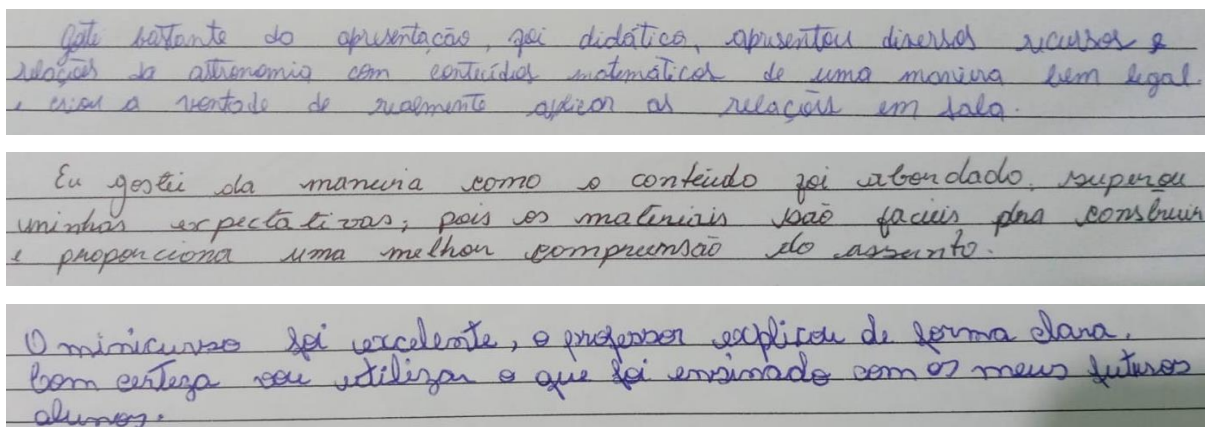 Gotei bastante do apresentação, foi didático, apresentou diversos recursos e
relações da astronomia com conteúdos matemáticos de uma maneira bem legal.
e criou a vontade de realmente aplicar as relações em sala.
Eu gostei da maneira como o conteúdo foi abordado, superou
minhas expectativas; pois os materiais são faceis pra construir
e proporciona uma melhor compreensão do assunto.
O minicurso foi excelente, o professor explicou de forma clara.
Com certeza vou utilizar o que foi ensinado com os meus futuros
alunos.